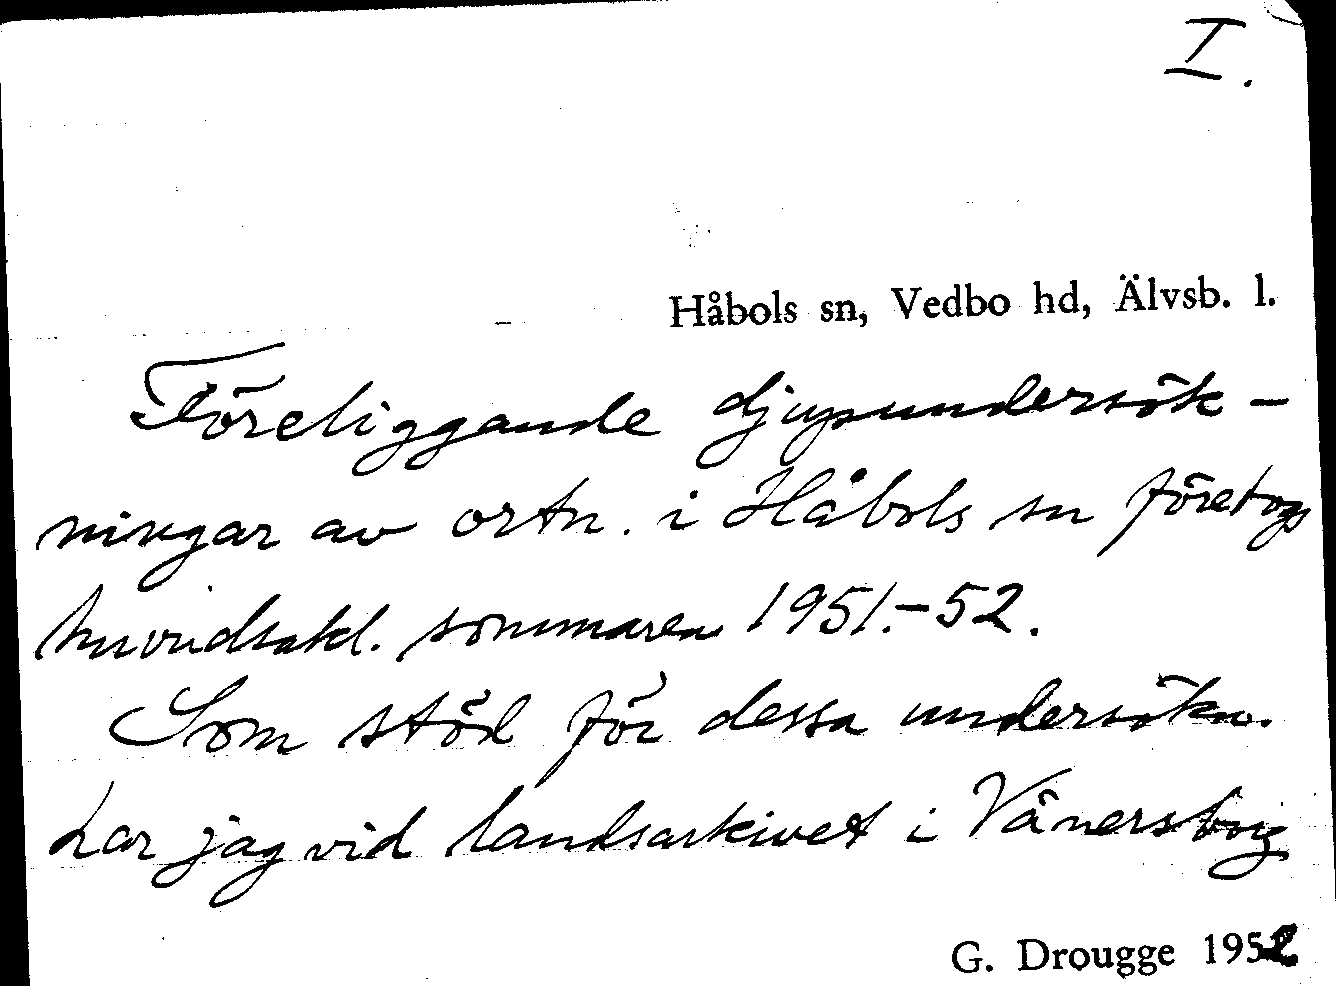 I.
Håbols sn, Vedbo hd, Älvsb. l.
Föreliggande djupundersök-
ningar av ortn. i Håbols sn företogs
huvudsakl. sommaren 1951.-52.
Som stöd för dessa undersökn.
har jag vid landsarkivet i Vänersborg
G. Drougge 1952